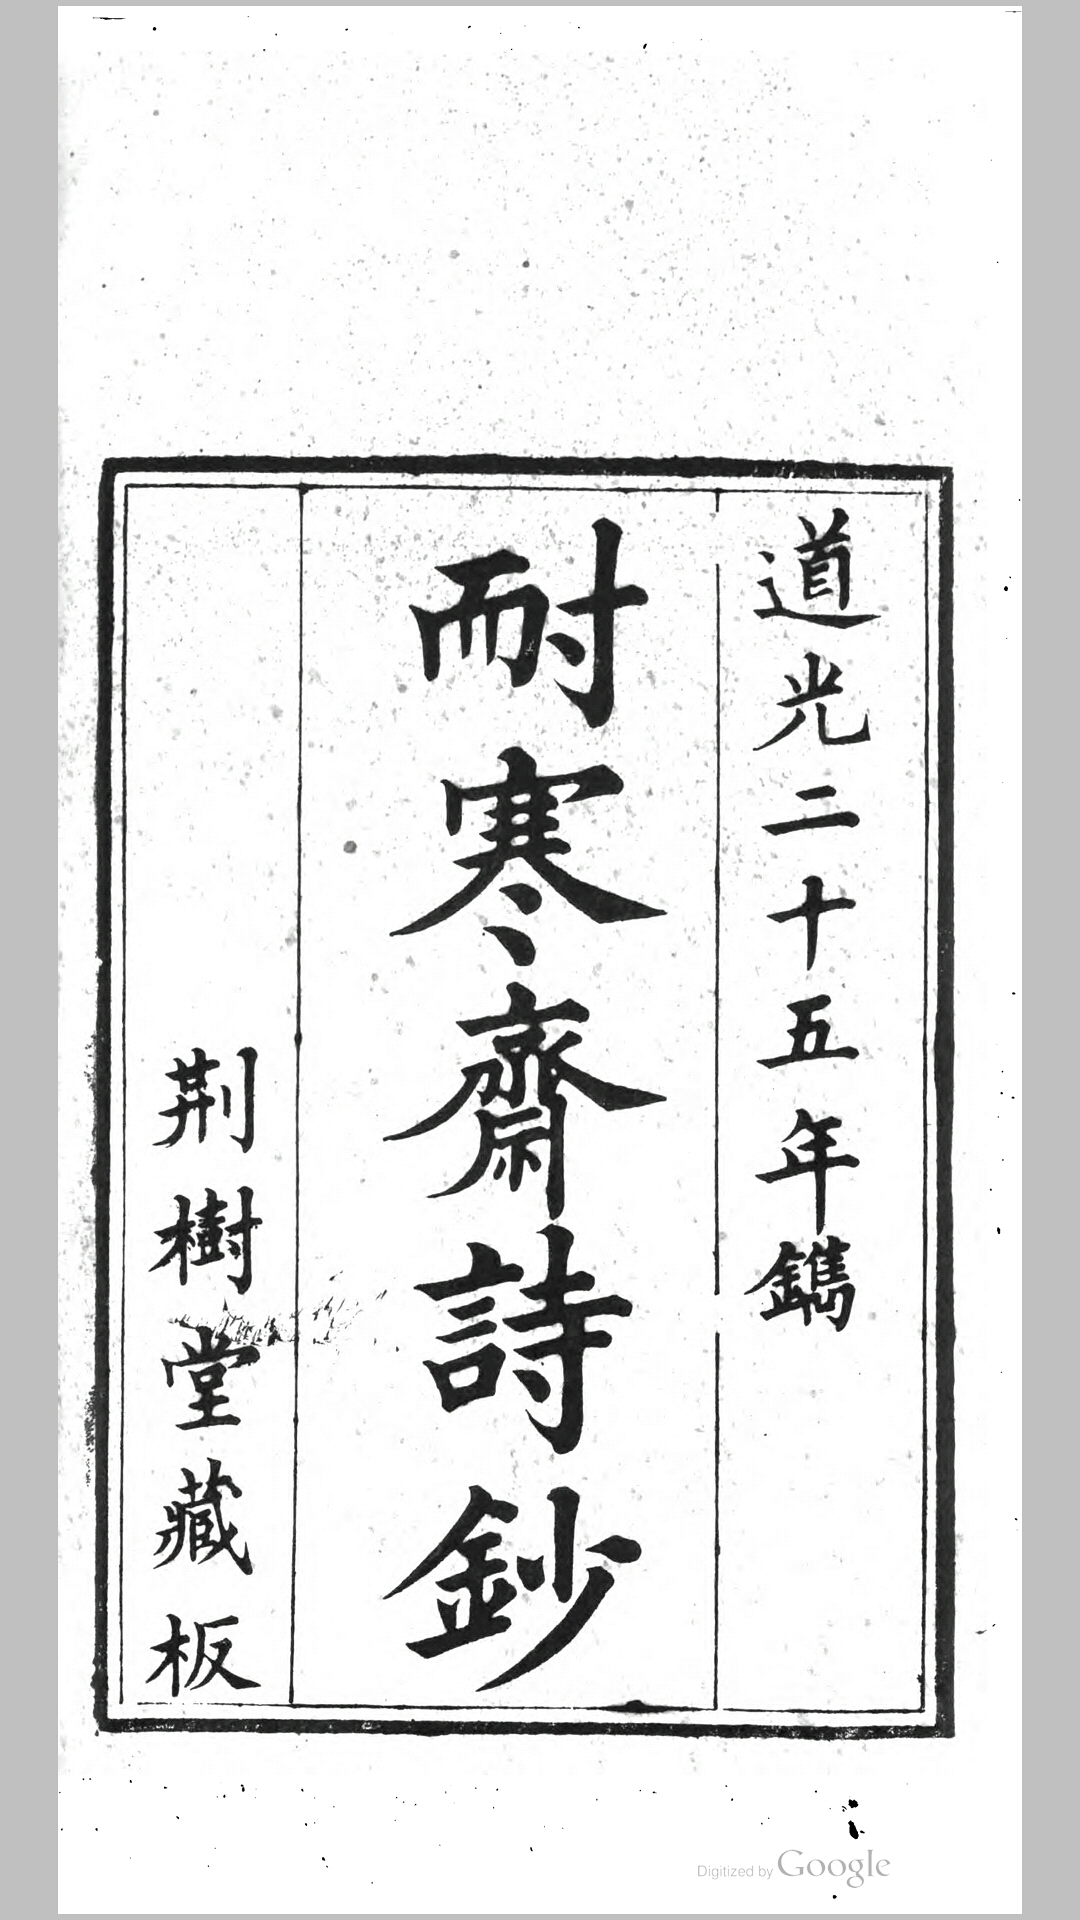 道光二十五年鐫
耐寒齋詩鈔
荆樹堂藏板
Digitized by Google